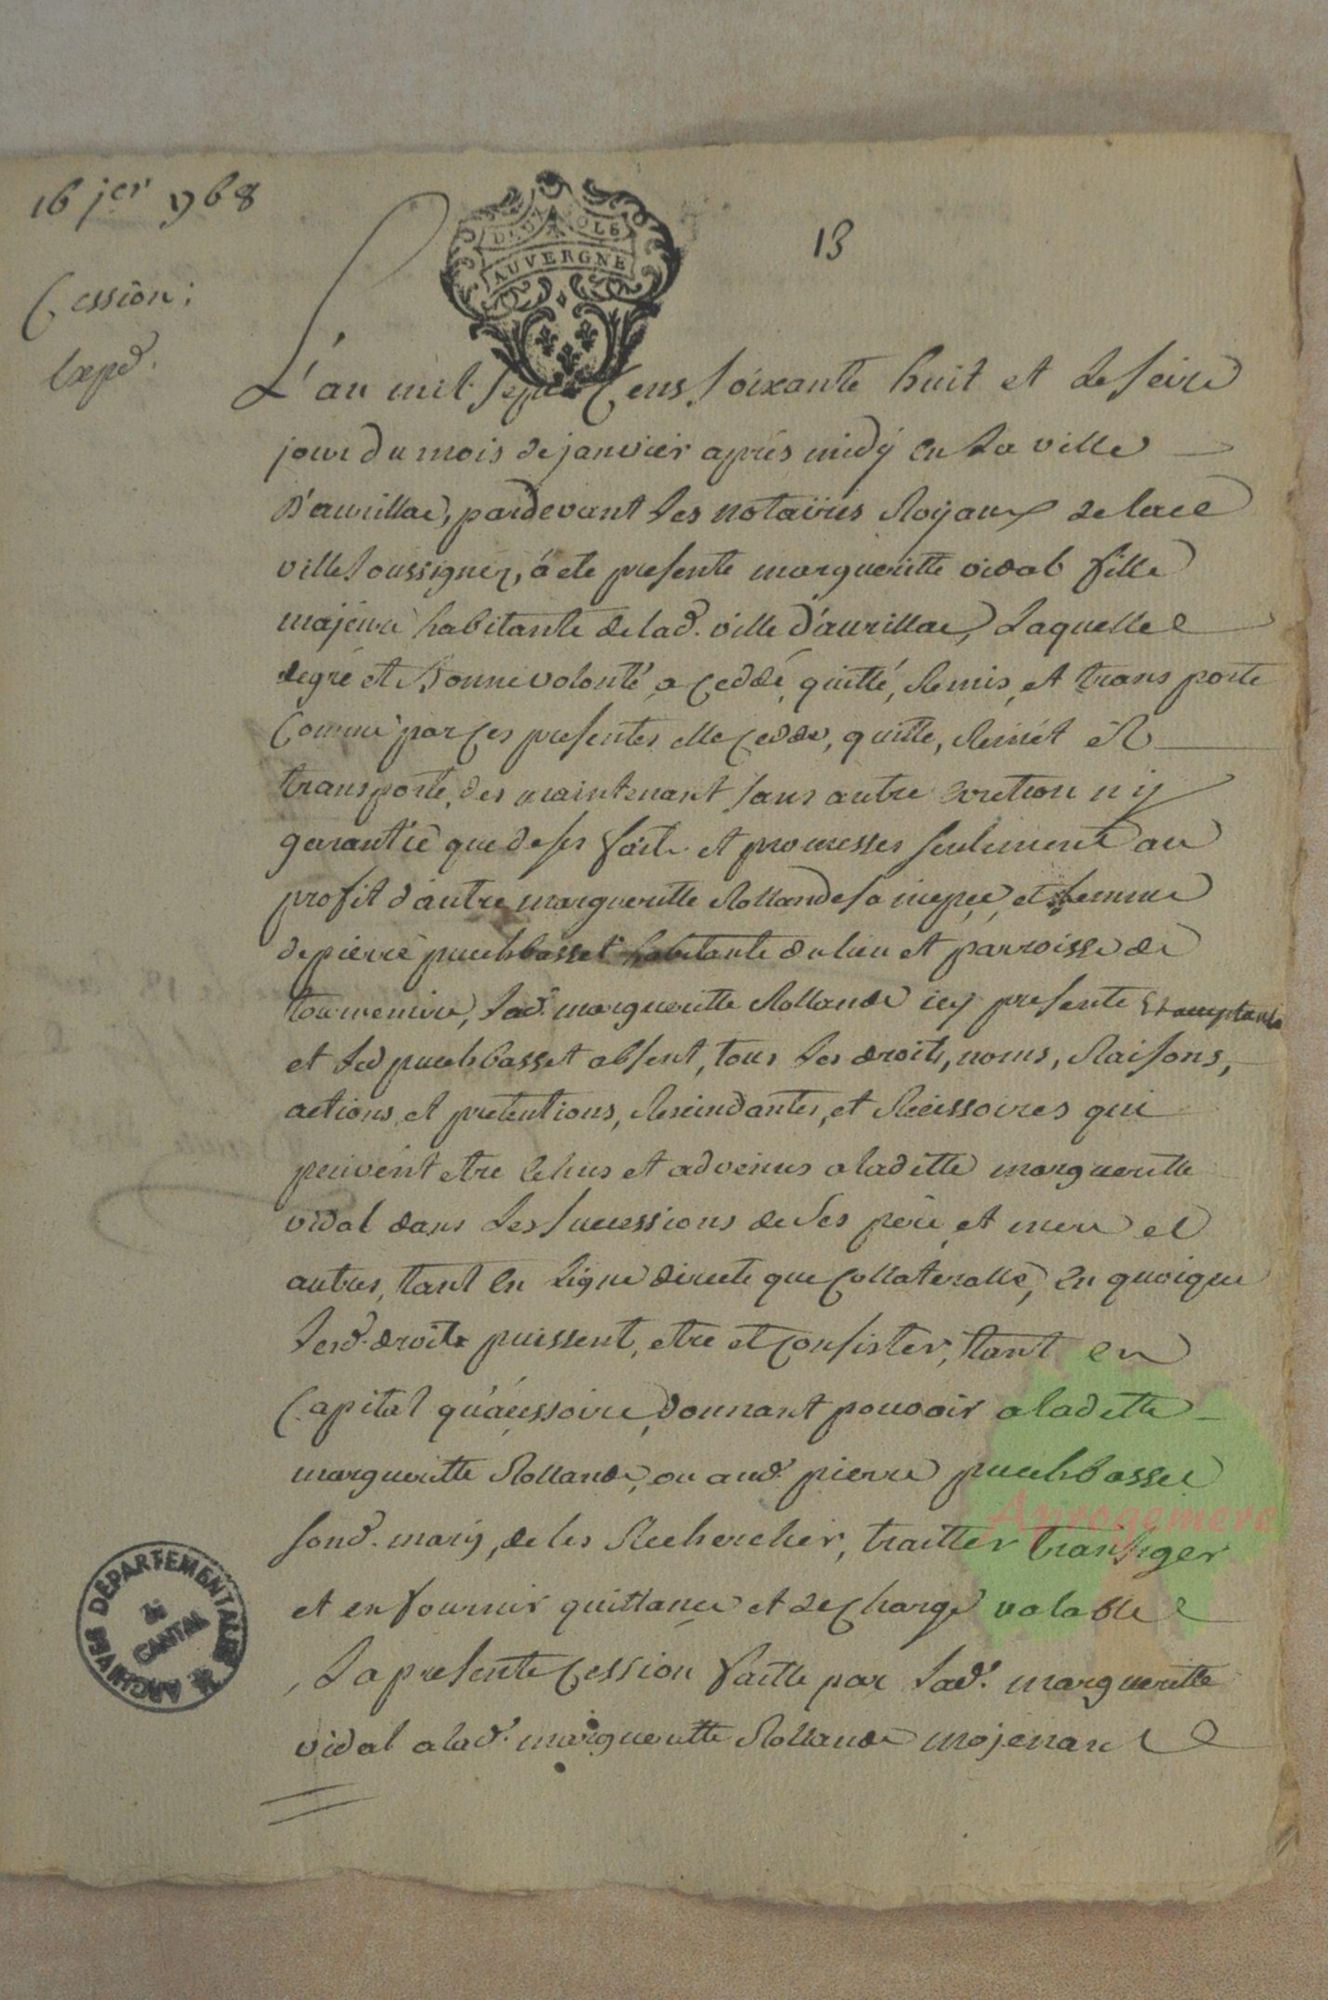 16 jer 1768
13
DEUX SOLS
AUVERGNE
Cession;
Expd.
L'an mil sept Cens soixante huit et le seize
jour du mois de janvier aprés midy en La ville
D'aurillac, pardevant les notaires Royaux de lad
ville soussignez, á eté presente margueritte vidal fille
majeure habitante de lad. ville D'aurillac, Laquelle
degré et Bonne volonté a Ceddé, quitté, Remis, et transporté
Comme par Ces presentes elle Cedde, quitte, Remét et
transporte, des maintenant sans autre eviction n'y
garantie que de ses faits et promesses seulement au
profit d'autre margueritte Rollande sa niepce, et femme
de pierre puechbasset habitante du lieu et parroisse de
tournemire, Lad. margueritte Rollande icy presente Et acceptante
et Led puechbasset absent, tous Les droits, noms, Raisons,
actions, et pretentions, Rescindantes, et Recissoires qui
peuvent etre Echus et advenus a ladette margueritte
vidal dans Les successions de Ses pere et mere et
autres, tant En Ligne directe que Collateralle, En quoique
Lesd. droits puissent, etre et Consister, tant en
Capital qu'accessoire, donnant pouvoir a ladette
margueritte Rollande, ou aud. pierre puechbasset
sond. mary, de les Rechercher, traitter transiger
et en fournir quittance et de Charge valable
, La presente Cession faitte par Lad. margueritte
vidal a lad. margueritte Rollande mojenant
ARCHIVES DEPARTEMENTALES
du
CANTAL
Aprogemere